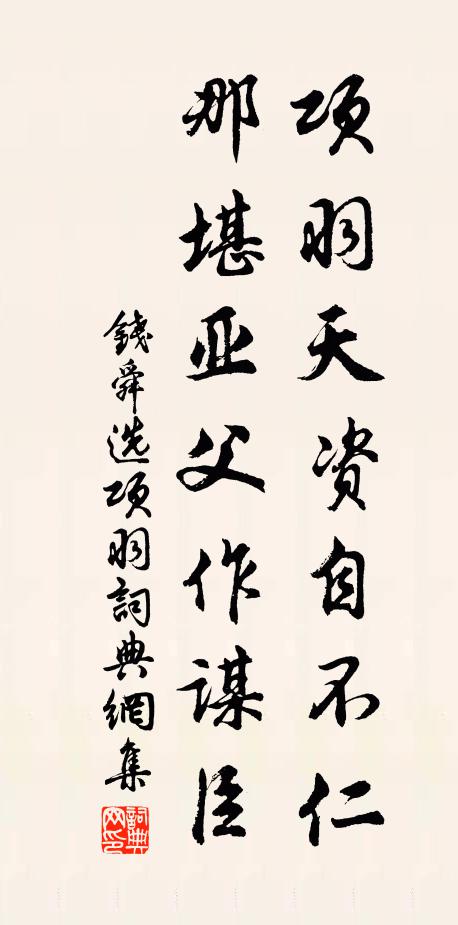 项羽天资自不仁
那堪亚父作谋臣
錢舜选项羽詞典網集
詞典网印